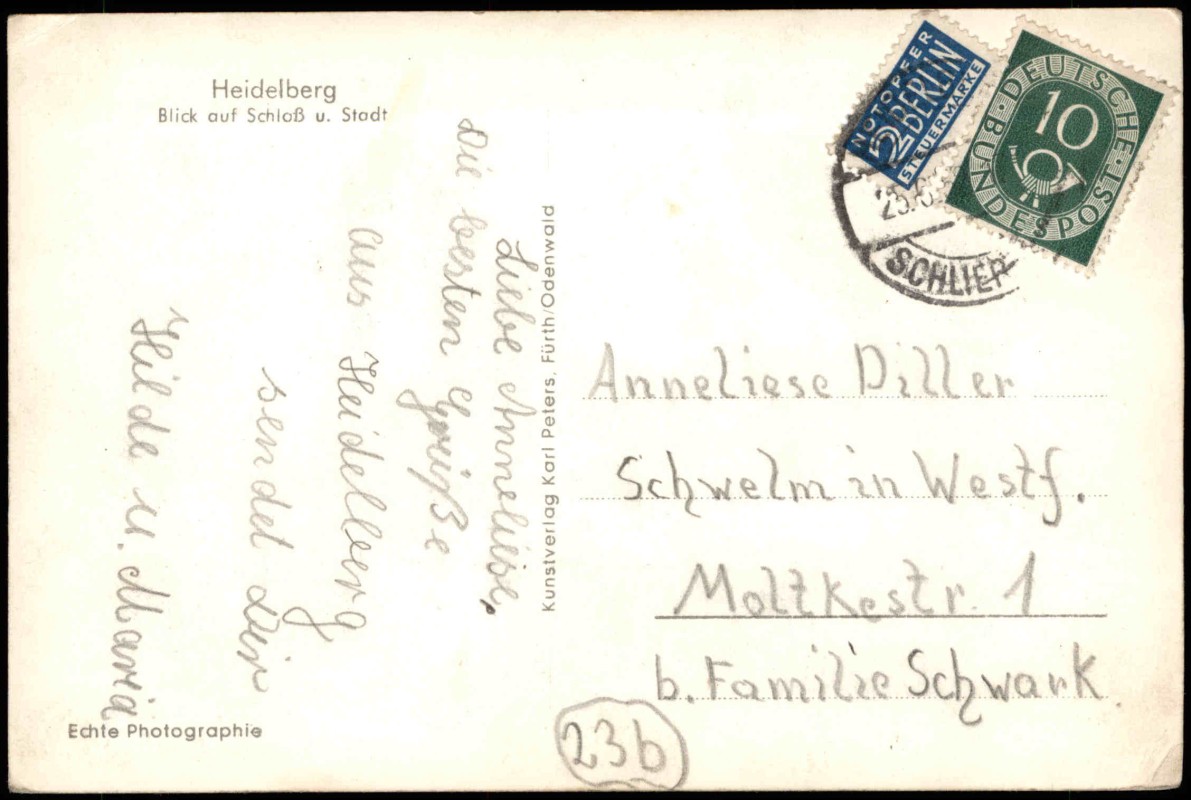 Heidelberg
Blick auf Schloß u. Stadt
Liebe Anneliese,
Die besten Grüße
aus Heidelberg
sendet Dir
Hilde u. Maria
Echte Photographie
Kunstverlag Karl Peters, Fürth/Odenwald
NOTOPFER
2 BERLIN
STEUERMARKE
DEUTSCHE BUNDESPOST
10
SCHLIER
Anneliese Diller
Schwelm in Westf.
Moltkestr. 1
b. Familie Schwark
23b